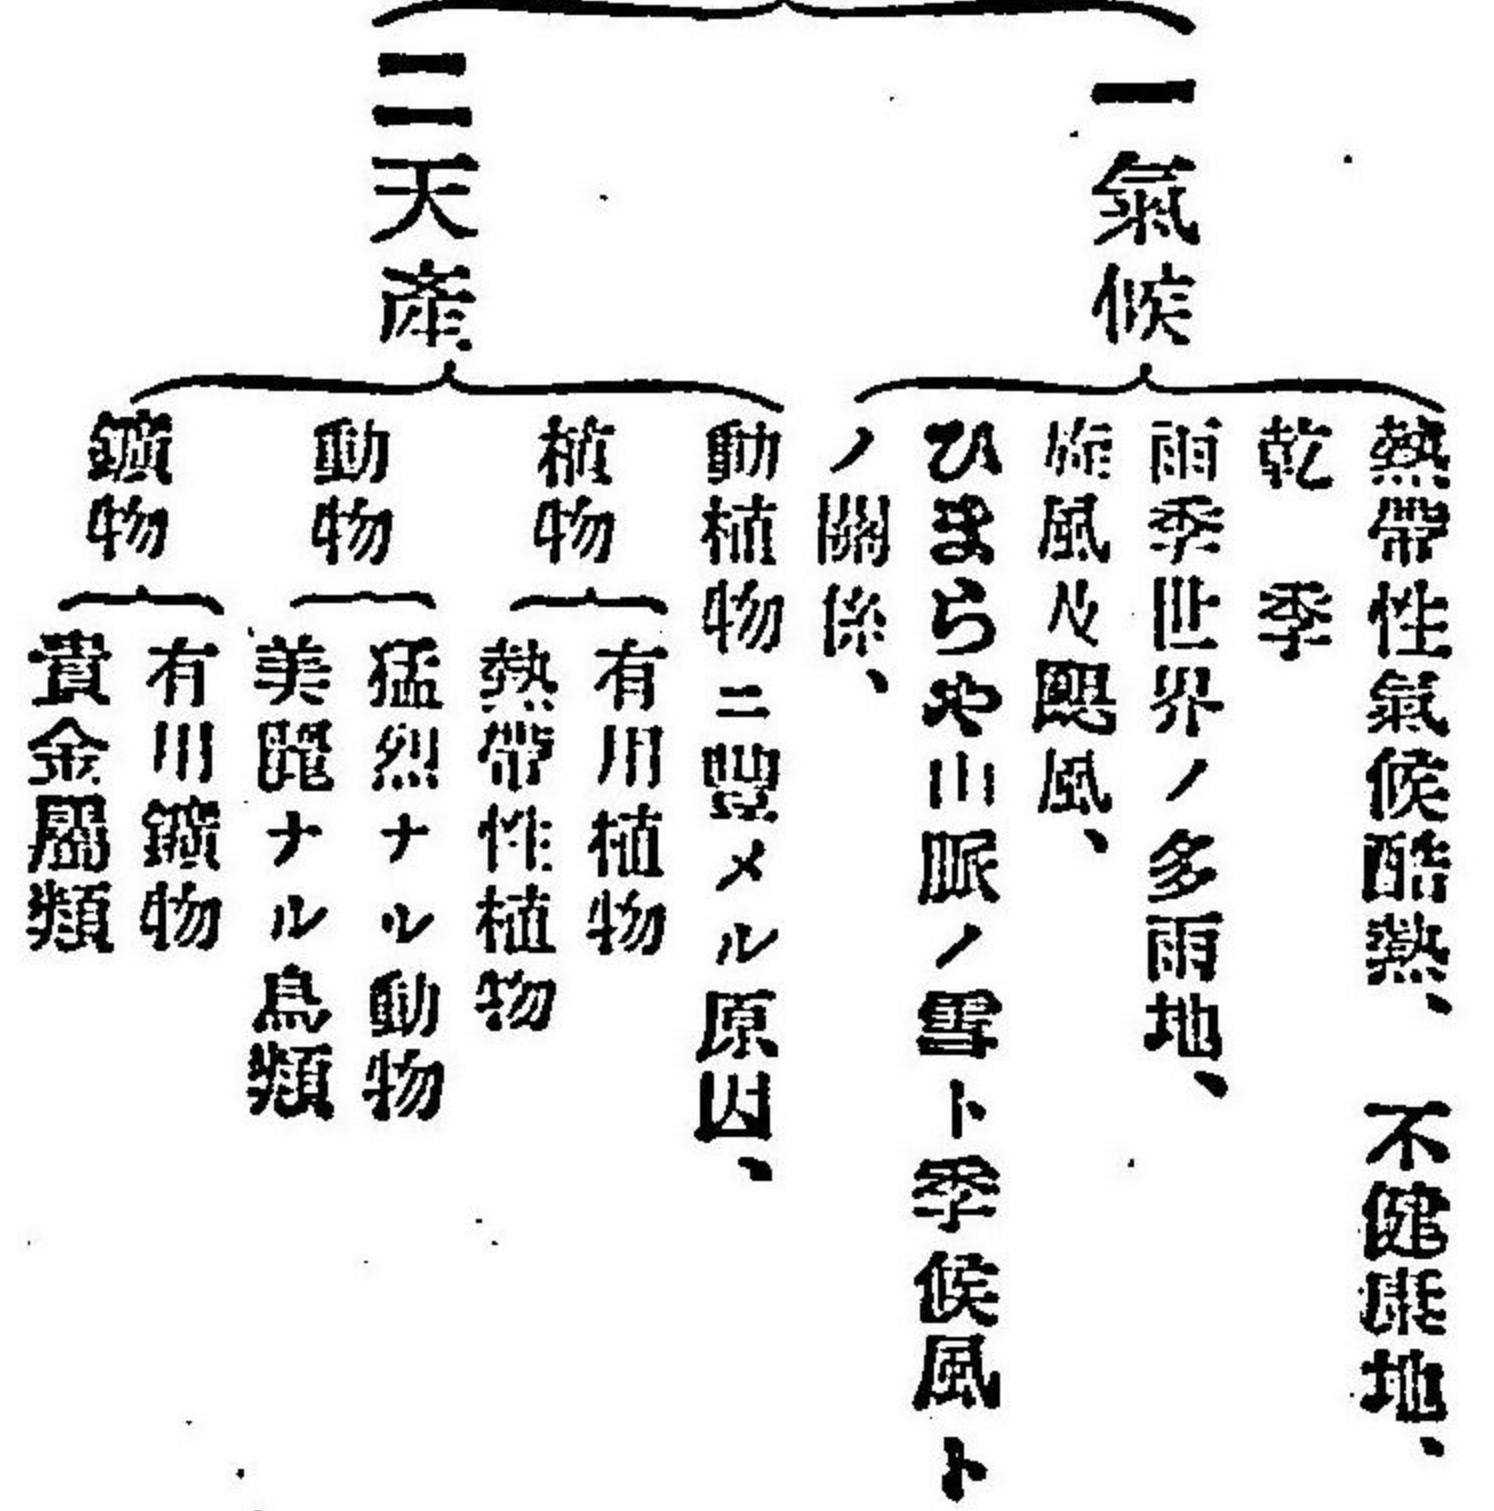 一氣候
熱帶性氣候酷熱、　不健康地、
乾　季
雨季世界ノ多雨地、
旋風及颶風、
ひまらや山脈ノ雪ト季候風ト
ノ關係、
二天產
動植物ニ豐メル原因、
植物
有用植物
熱帶性植物
動物
猛烈ナル動物
美麗ナル鳥類
鑛物
有用鑛物
貴金屬類